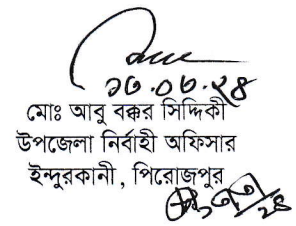 ১৩.০৬.২৪
মোঃ আবু বক্কর সিদ্দিকী
উপজেলা নির্বাহী অফিসার
ইন্দুরকানী, পিরোজপুর